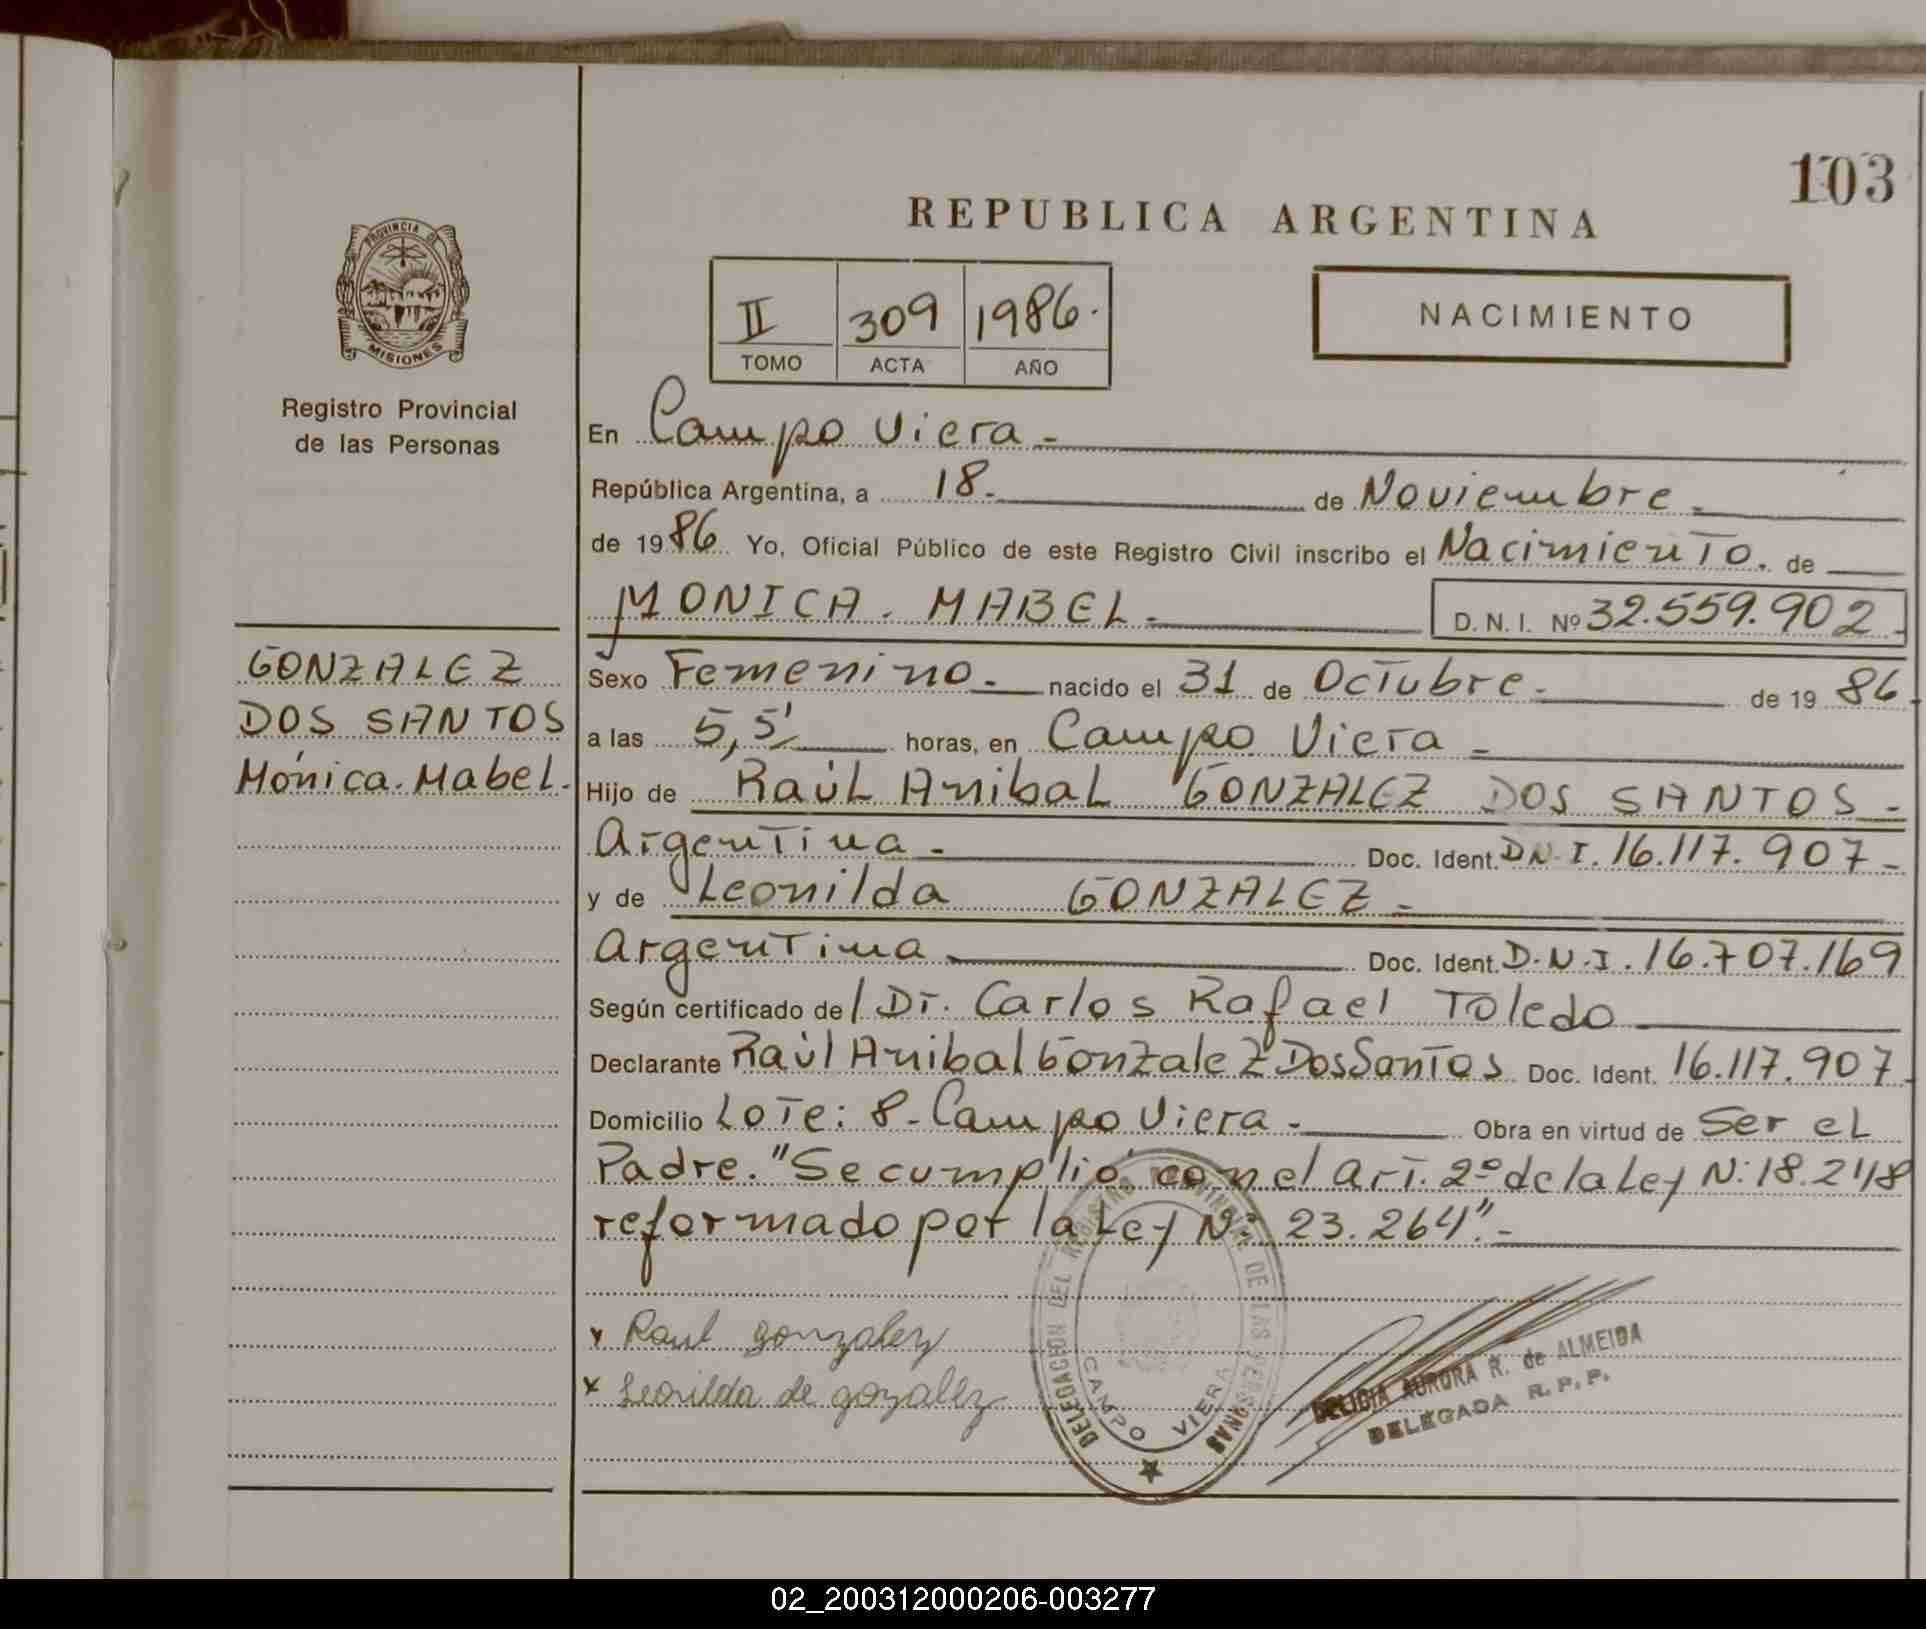 103
REPUBLICA ARGENTINA
PROVINCIA DE
MISIONES
Registro Provincial
de las Personas
II 309 1986.
TOMO ACTA AÑO
NACIMIENTO
En Campo Viera -
República Argentina, a 18. de Noviembre
de 1986 Yo, Oficial Público de este Registro Civil inscribo el Nacimiento. de
MONICA. MABEL. D.N.I. Nº 32.559.902
GONZALEZ
DOS SANTOS
Mónica. Mabel.
Sexo Femenino. nacido el 31 de Octubre. de 19 86.
a las 5,5' horas, en Campo Viera
Hijo de Raúl Anibal GONZALEZ DOS SANTOS -
Argentina - Doc. Ident. D.N.I. 16.117.907 -
y de Leonilda GONZALEZ -
Argentina Doc. Ident. D.N.I. 16.707.169
Según certificado de / Dr. Carlos Rafael Toledo
Declarante Raúl Anibal Gonzalez Dos Santos Doc. Ident. 16.117.907.
Domicilio Lote: 8 - Campo Viera - Obra en virtud de Ser el
Padre. "Se cumplió con el art. 2º de la Ley N: 18.248
reformado por la Ley Nº 23.264".-
x Raul gonzalez
x Leonilda de gozalez
DELEGACION DEL REGISTRO PROVINCIAL DE LAS PERSONAS
CAMPO VIERA
DELICIA AURORA R. de ALMEIDA
DELEGADA R.P.P.
02_200312000206-003277